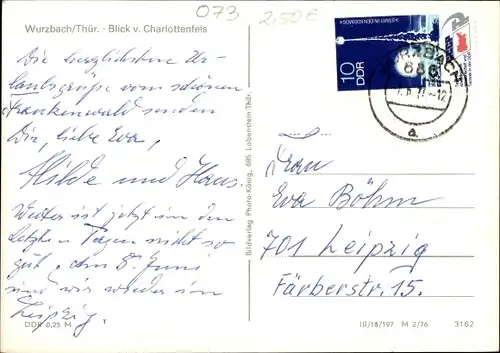 073
2,50€
Wurzbach/Thür. - Blick v. Charlottenfels
Die herzlichsten Ur-
laubsgrüße vom schönen
Frankenwald senden
Dir, liebe Eva,
Hilde und Hans.
Wetter ist jetzt in den
letzten Tagen nicht so
gut. Am 8. Juni
sind wir wieder in
Leipzig.
DDR 0,25 M
Bildverlag Photo-König, 685 Lobenstein/Thür.
10
DDR
WURZBACH
a
Frau
Eva Böhm
701 Leipzig
Färberstr. 15.
III/18/197 M 2/76
3162